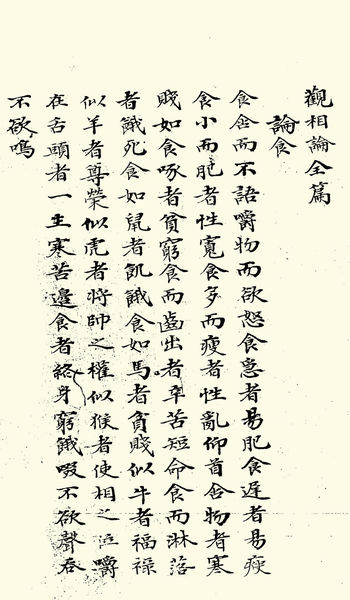 觀相論全篇
論食
食含而不語嚼物而欲怒食急者易肥食遲者易瘦
食小而肥者性寬食多而瘦者性亂仰首含物者寒
賤如食啄者貧窮食而齒出者辛苦短命食而淋落
者餓死食如鼠者飢餓食如馬者貧賤似牛者福祿
似羊者尊榮似虎者將帥之權似猴者使相之位嚼
在舌頭者一生寒苦邊食者終身窮餓啜不欲聲吞
不欲鳴